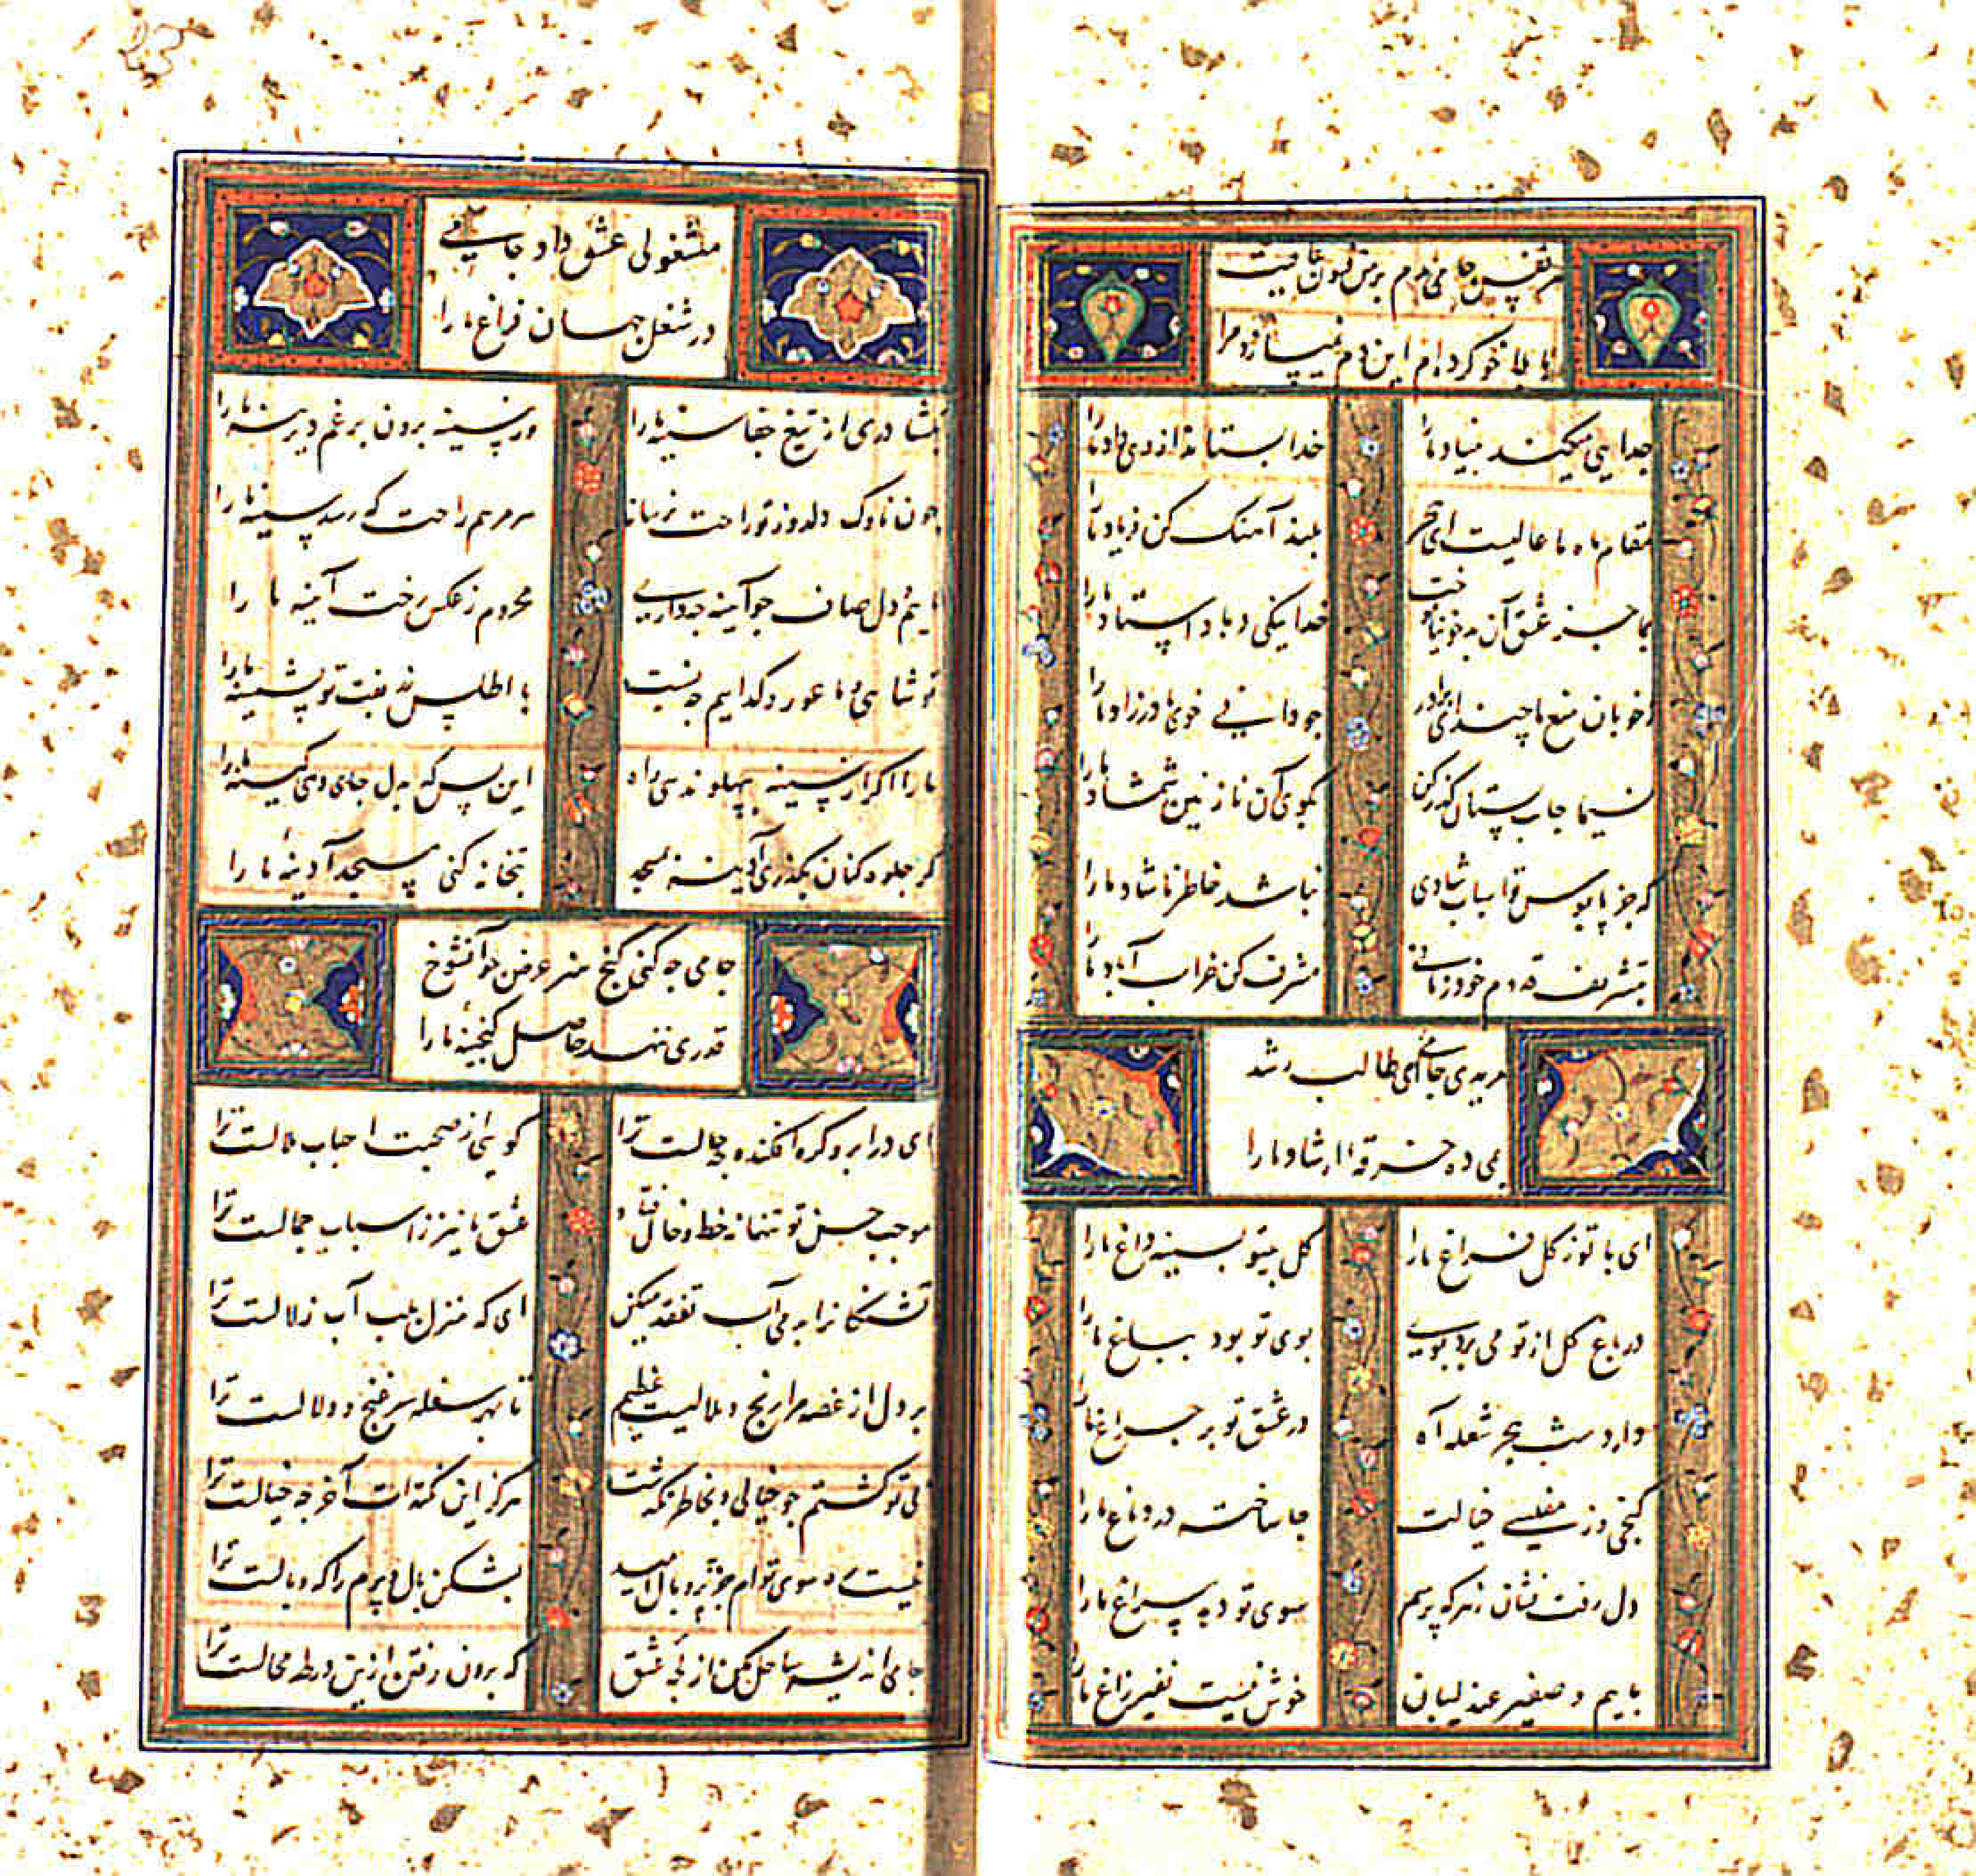 هر نفس جامی دم برمن فسون عافیت
با بلا خو کرده‌ام این دم نمیسازد مرا
جدایی میکند بنیاد ما را خدا بستاند از وی داد ما را
مقام ماه ما عالیست ای بلند آهنک کن فریاد ما را
جز عشق آن خدا نیکی دهاد استاد ما را
ز خوبان منع ما چند ای برادر جو دانی خوی مادرزاد ما را
نسیما جانب بستان گذر کن بگوی آن نازنین شمشاد ما را
که جز پابوس تو اسباب شادی نباشد خاطر ناشاد ما را
بتشریف قدوم خود زمانی مشرف کن خراب آباد ما را
مریدی جامی ای طالب رشد
بمی ده خرقه ارشاد ما را
ای با تو ز کل فراغ ما را کل بیتو بسینه داغ ما را
در باغ کل از تو می برد بویی بوی تو بود بباغ ما را
دارد شب هجر شعله آه در عشق تو بر چراغ ما را
کنجی و ز مفلسی خیالت جا ساخته در دماغ ما را
دل رفت نشان ز هر که پرسم سوی تو دهد سراغ ما را
ماییم و صفیر عندلیبان خوش نیست نفیر زاغ ما را
مشغولی عشق داد جامی
در شغل جهان فراغ ما را
بکشا دری از تیغ جفا سینه ما را وز سینه برون بر غم دیرینه ما را
چون ناوک دلدوز تو راحت نرساند مرهم راحت که رسد سینه ما را
ماییم دل صاف جو آینه جه داری محروم ز عکس رخت آیینه ما را
تو شاهی و ما عور و کداییم جه نسبت با اطلس زربفت تو پشمینه ما را
ما را اکر از سینه بپهلو ندهی راه این بس که بدل جای دهی کینه ما را
کر جلوه کنان بکذری آدینه بمسجد بتخانه کنی مسجد آدینه ما را
جامی جه کنی کنج هنر عرض جو آنشوخ
قدری ننهد حاصل کنجینه ما را
ای در ابرو کره افکنده جه حالست ترا کویی از صحبت احباب ملالست ترا
موجب حسن تو تنها نه خط و خال عشق ما نیز ز اسباب جمالست ترا
تشنکانرا به می آب تفقد میکن ای که منزل بلب آب زلالست ترا
بر دل از غصه مرا رنج و ملالیست عظیم تا بهر سفله سر غنج و دلالست ترا
بی تو کشتم جو خیالی و بخاطر نکذشت هرکز این نکته ات آخر چه خیالست ترا
نیست ره سوی توام جز بپر و بال امید بشکن بال و پرم را که وبالست ترا
جامی اندیشه ساحل مکن از لجه عشق که برون رفتن ازین ورطه محالست ترا